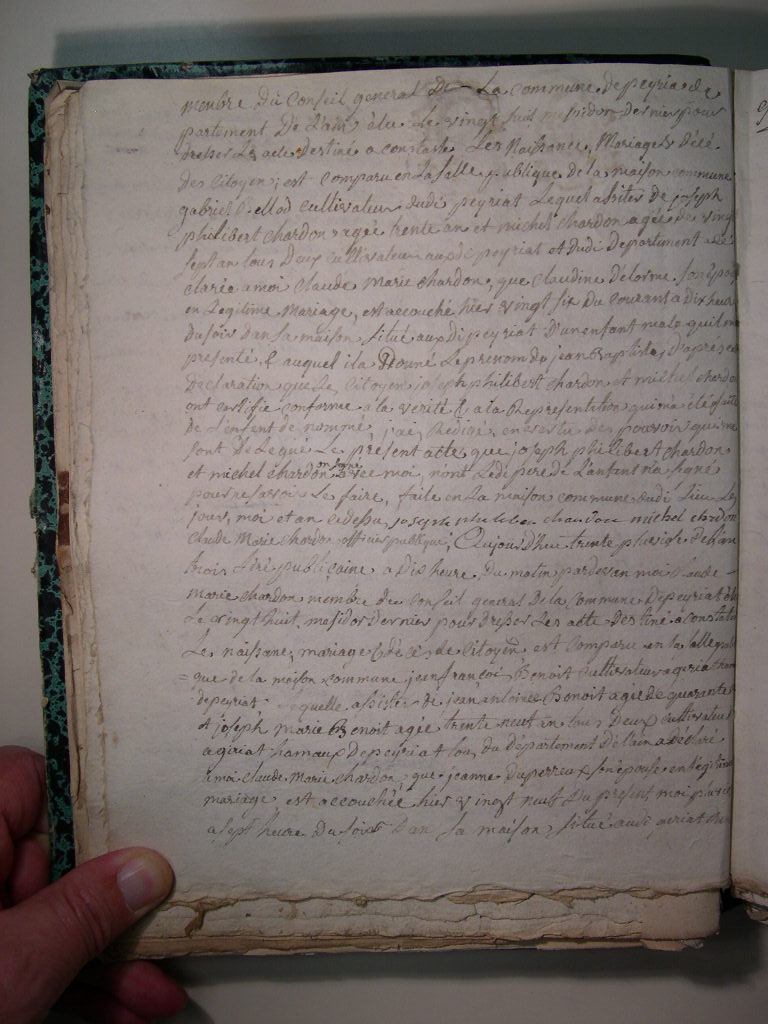 membre du Conseil general De La commune de peyria de
partement De L'ain élu Le vingt huit messidor dernies pour
dresser Les acte Destiné a constaté Les Naissance, Mariage & Décé
des Citoyen; est comparu en La Salle publique de la maison commune
gabriel cultivateur dudi peyriat Lequel assites de joseph
philibert chardon agée trente an et michel chardon agée de vingt
sept an tous Deux cultivateur audi peyriat et dudi Departement a dé
clarée a moi Claude Marie chardon, que Claudine Delorme, son épou
en Legitime Mariage, est accouché hier vingt six du courant a dix heure
du soir dans sa maison situé audi peyriat D'un enfant male quil m
presenté & auquel il a Donné Le prenom de jean Baptiste, d'aprés
Declaration que Le Citoyen joseph philibert chardon et michel chardon
ont certifie conforme a la verité & a la Representation qui ma été
De L'enfent denommé, j'ai Rédigé, en vertu des pouvoir qui me
sont Delegué Le présent acte, que joseph philibert chardon
et michel chardon on signé avec moi, non Ledi pere de L'antant n'a signé
pour ne savoir Le faire, faite en La maison commune dudi Lieu Le
jour, moi et an cedessu joseph philibert chardon michel chardon
Claude Marie chardon officier publique, Aujourd'hui trente pluviose de l'an
trois républicaine a dis heure Du matin pardevan moi Claude
Marie chardon membre du Conseil general De La Commune De peyriat élu
Le vingt huit messidor dernier pour dresser Les acte destiné a constaté
Le naissane, mariage & décé de Citoyen est comparu en la salle publi
que de la maison commune jean françoi Benoit cultivateur a giriat ham
depeyriat lequelle assister de jean antoine Benoit agée de quarante
et joseph marie Benoit agée trente neuf an tous Deux cultivateur
a giriat hamaux De peyriat tou du département De l'ain a Déclaré
a moi Claude Marie chardon, que jeanne Duperreux son épouse en legitime
mariage est accouchée hier vingt neuf Du present moi
a sept heure Du soir Dan sa maison situé audi giriat